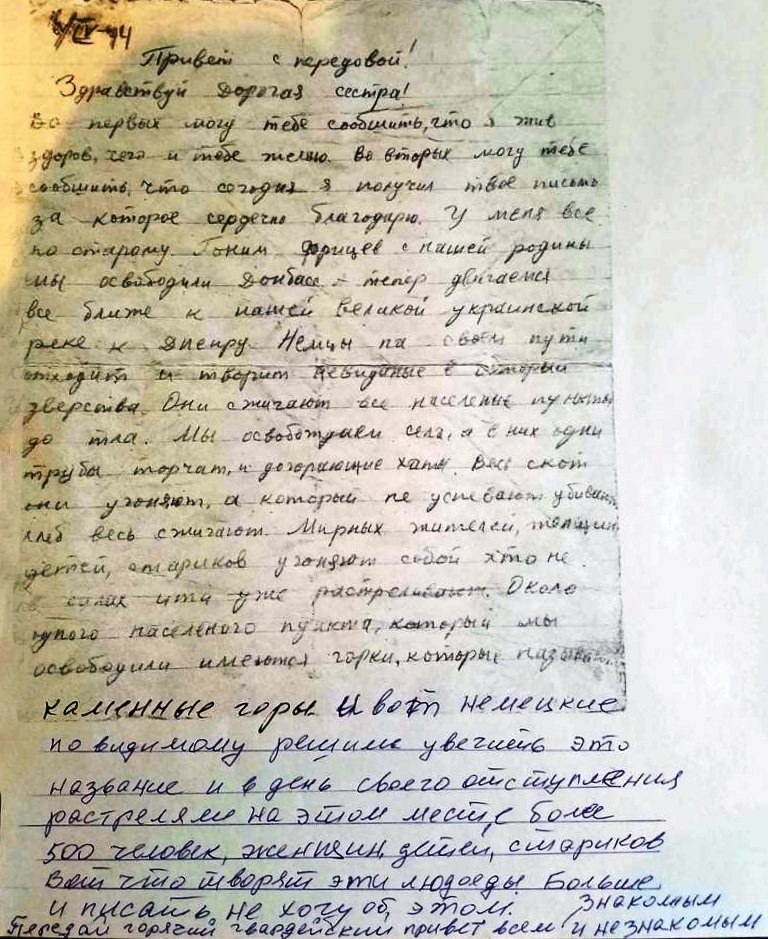 Привет с передовой!
Здравствуй Дорогая сестра!
Во первых могу тебе сообщить, что я жив
здоров, чего и тебе желаю. Во вторых могу тебе
сообщить, что сегодня я получил твое письмо
за которое сердечно благодарю. У меня все
по старому. Гоним фрицев с нашей родины
мы освободили Донбасс тепер двигаемся
все ближе к нашей великой украинской
реке к Днепру. Немцы на своем пути
отходит и творит невиданые в истории
зверства. Они сжигают все населеные пункты
до тла. Мы освобождаем села, а в них одни
трубы торчат, и догорающие хаты. Весь скот
они угоняют, а который не успевают убивают
хлеб весь сжигают. Мирных жителей, женщин
детей, стариков угоняют собой хто не
силах ити уже растреливают. Около
одного населеного пункта, который мы
освободили имеются горки, которые называют
каменные горы и вот немецкие
по видимому решили увечить это
название и в день своего отступления
растреляли на этом месте более
500 человек, женщин, детей, стариков
Вот что творят эти людоеды Больше
и писать не хочу об этом.
Передай горячий гвардейский привет всем знакомым
и незнакомым